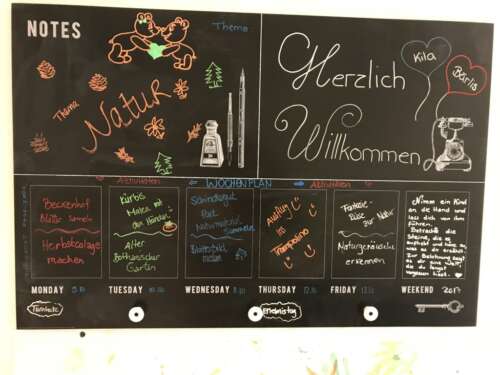 NOTES
Thema
Thema
Natur
Herzlich
Willkommen
Kila
Bärlis
Aktivitäten
WOCHENPLAN
Aktivitäten
Beckenhof
Blätter sammeln
Herbstcollage
machen
Kürbis
Malen mit
den Händen
Alter
Botanischer
Garten
Schindlergut
Park
Naturmaterial
sammeln
Blätterbild
malen
Ausflug
ins
Trampolino
Fantasie-
Reise zur Natur
Naturgeräusche
erkennen
Nimm ein Kind
an die Hand und
lass dich von ihm
führen.
Betrachte die
Steine, die es
aufhebt und höre zu,
was es dir erzählt.
Zur Belohnung zeigt
es dir eine Welt,
die du längst
vergessen hast.
MONDAY 9.10
TUESDAY 10.10
WEDNESDAY 11.10
THURSDAY 12.10
FRIDAY 13.10
WEEKEND 2017
Turnhalle